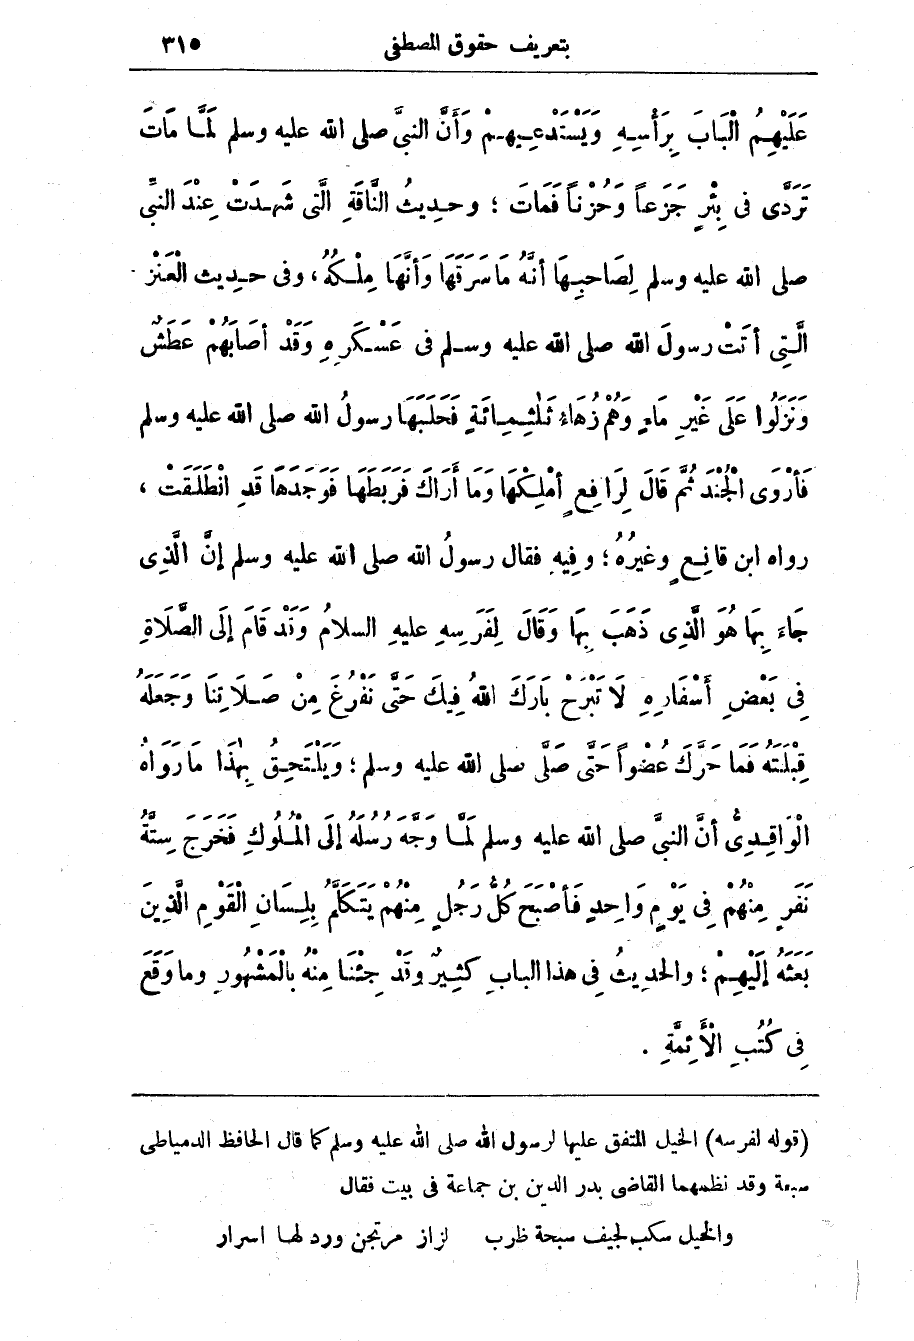 بتعريف حقوق المصطفى ٣١٥
عَلَيْهِمُ الْبَابَ بِرَأْسِهِ وَيَسْتَدْعِيهِمْ وَأَنَّ النبيَّ صلى الله عليه وسلم لَمَّا مَاتَ
تَرَدَّى فى بِئْرٍ جَزَعاً وَحُزْناً فَمَاتَ ؛ وحديثُ النَّاقَةِ الَّتى شَهِدَتْ عِنْدَ النبيِّ
صلى الله عليه وسلم لِصَاحِبِهَا أنَّهُ مَا سَرَقَهَا وَأنَّهَا مِلْكُهُ ، وفى حديث الْعَنْزِ
الَّتِى أتَتْ رسولَ الله صلى الله عليه وسلم فى عَسْكَرِهِ وَقَدْ أصَابَهُمْ عَطَشٌ
وَنَزَلُوا عَلَى غَيْرِ مَاءٍ وَهُمْ زُهَاءُ ثَلٰثِمِائَةٍ فَحَلَبَهَا رسولُ الله صلى الله عليه وسلم
فَأرْوَى الْجُنْدَ ثُمَّ قَالَ لِرَافِعٍ أمْلِكْهَا وَمَا أَرَاكَ فَرَبَطَهَا فَوَجَدَهَا قَدِ انْطَلَقَتْ ،
رواه ابن قانِعٍ وغيرُهُ ؛ وفِيهِ فقال رسولُ الله صلى الله عليه وسلم إنَّ الَّذِى
جَاءَ بِهَا هُوَ الَّذِى ذَهَبَ بِهَا وَقَالَ لِفَرَسِهِ عليهِ السلامُ وَقَدْ قَامَ إلَى الصَّلَاةِ
فى بَعْضِ أَسْفَارِهِ لَا تَبْرَحْ بَارَكَ اللهُ فِيكَ حَتَّى نَفْرُغَ مِنْ صَلَاتِنَا وَجَعَلَهُ
قِبْلَتَهُ فَمَا حَرَّكَ عُضْواً حَتَّى صَلَّى صلى الله عليه وسلم ؛ وَيَلْتَحِقُ بِهٰذَا مَا رَوَاهُ
الْوَاقِدِىُّ أنَّ النبيَّ صلى الله عليه وسلم لَمَّا وَجَّهَ رُسُلَهُ إلَى الْمُلُوكِ فَخَرَجَ سِتَّةُ
نَفَرٍ مِنْهُمْ فِى يَوْمٍ وَاحِدٍ فَأصْبَحَ كُلُّ رَجُلٍ مِنْهُمْ يَتَكَلَّمُ بِلِسَانِ الْقَوْمِ الَّذِينَ
بَعَثَهُ إلَيْهِمْ ؛ والحديثُ فى هذا البابِ كَثِيرٌ وَقَدْ جِئْنَا مِنْهُ بالْمَشْهُورِ وما وَقَعَ
فى كُتُبِ الْأَئِمَّةِ .
(قوله لفرسه) الخيل المتفق عليها لرسول الله صلى الله عليه وسلم كما قال الحافظ الدمياطى
سبعة وقد نظمهما القاضى بدر الدين بن جماعة فى بيت فقال
والخيل سكب لجيف سبحة ظرب لزاز مرتجن ورد لها اسرار